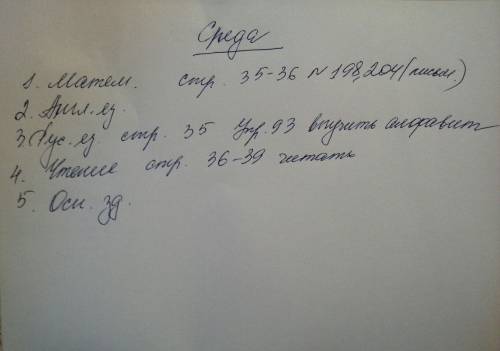 Среда
1. Матем. стр. 35-36 № 198,204 (письм.)
2. Англ. яз.
3. Рус. яз. стр. 35 Упр. 93 выучить алфавит
4. Чтение стр. 36-39 читать
5. Осн. зд.